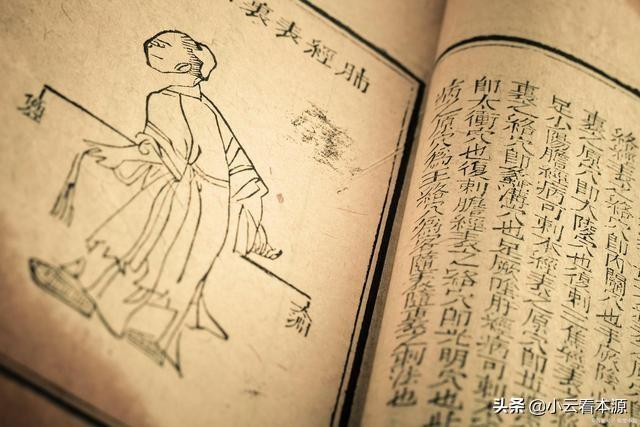 肺經表裏
太淵
絡經裏之絡穴即內關穴也手厥陰
裏之原穴即大陵穴也復刺三焦經表
足少陽膽經病可刺本經表之原穴即
裏之絡穴即蠡溝穴也足厥陰肝經病可刺
即太衝穴也復刺膽經表之絡穴即光明穴也此
病之原穴為主絡穴為客隨表隨裏之刺法也
头条 @小云看本源